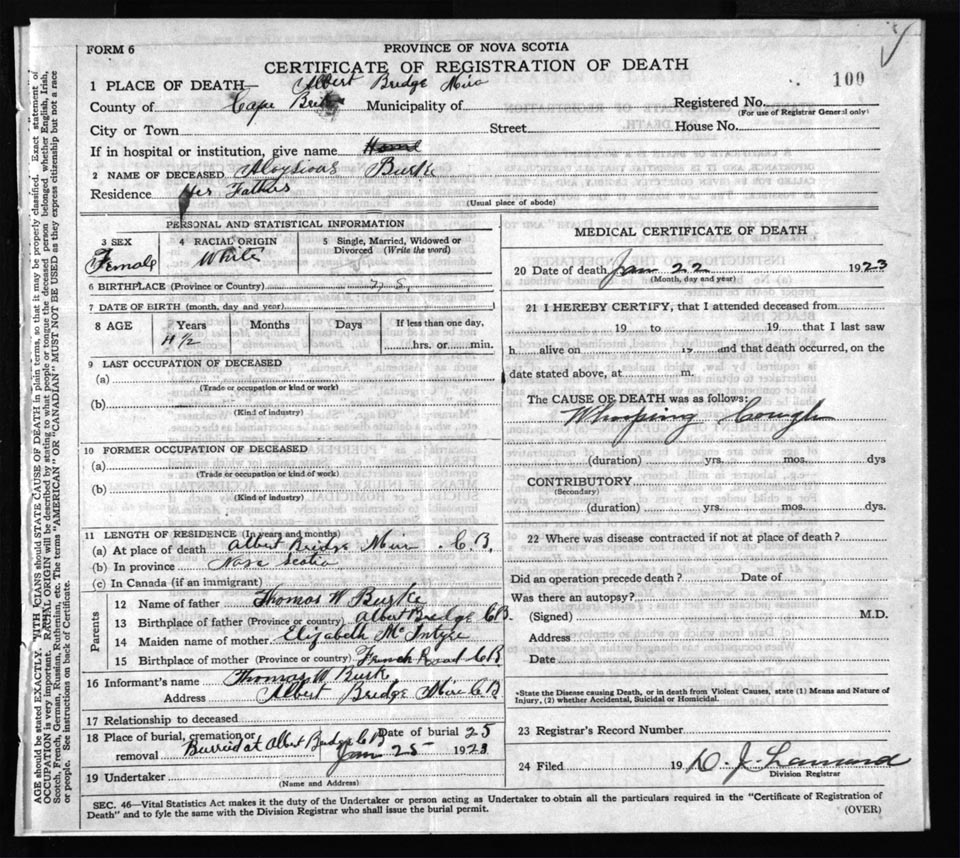 FORM 6
PROVINCE OF NOVA SCOTIA
CERTIFICATE OF REGISTRATION OF DEATH
100
1 PLACE OF DEATH— Albert Bridge Mira
County of Cape Breton Municipality of Registered No.
(For use of Registrar General only)
City or Town Street House No.
If in hospital or institution, give name
2 NAME OF DECEASED Burke
Residence Her Fathers
(Usual place of abode)
PERSONAL AND STATISTICAL INFORMATION
3 SEX 4 RACIAL ORIGIN 5 Single, Married, Widowed or Divorced (Write the word)
Female White
6 BIRTHPLACE (Province or Country) N. S.
7 DATE OF BIRTH (month, day and year)
8 AGE Years Months Days If less than one day,
4 1/2 hrs. or min.
9 LAST OCCUPATION OF DECEASED
(a)
(Trade or occupation or kind or work)
(b)
(Kind of industry)
10 FORMER OCCUPATION OF DECEASED
(a)
(Trade or occupation or kind of work)
(b)
(Kind of industry)
11 LENGTH OF RESIDENCE (In years and months)
(a) At place of death Albert Bridge Mira C B.
(b) In province Nova Scotia
(c) In Canada (if an immigrant)
Parents
12 Name of father Thomas W Burke
13 Birthplace of father (Province or country) Albert Bridge CB.
14 Maiden name of mother Elizabeth McIntyre
15 Birthplace of mother (Province or country) French Road CB
16 Informant's name Thomas W Burk
Address Albert Bridge Mira C B
17 Relationship to deceased
18 Place of burial, cremation or removal Burried at Albert Bridge CB Date of burial 25
Jan 25 1923
19 Undertaker
(Name and Address)
MEDICAL CERTIFICATE OF DEATH
20 Date of death Jan 22 1923
(Month, day and year)
21 I HEREBY CERTIFY, that I attended deceased from
19 to 19 that I last saw
h alive on 19 and that death occurred, on the
date stated above, at m.
The CAUSE OF DEATH was as follows:
Whooping Cough
(duration) yrs. mos. dys
CONTRIBUTORY
(Secondary)
(duration) yrs. mos. dys.
22 Where was disease contracted if not at place of death?
Did an operation precede death? Date of
Was there an autopsy?
(Signed) M.D.
Address
Date
*State the Disease causing Death, or in death from Violent Causes, state (1) Means and Nature of
Injury, (2) whether Accidental, Suicidal or Homicidal.
23 Registrar's Record Number
24 Filed 19
Division Registrar
SEC. 46—Vital Statistics Act makes it the duty of the Undertaker or person acting as Undertaker to obtain all the particulars required in the "Certificate of Registration of
Death" and to fyle the same with the Division Registrar who shall issue the burial permit.
(OVER)
AGE should be stated EXACTLY. CIANS should STATE CAUSE OF DEATH in plain terms, so that it may be properly classified. Exact statement of
OCCUPATION is very important. RACIAL ORIGIN will be described by stating to what people or tongue the deceased person belonged whether English, Irish,
Scotch, French, German, Russian, Ruthenian, etc. The terms "AMERICAN" OR "CANADIAN" MUST NOT BE USED as they express citizenship but not a race
or people. See instructions on back of Certificate.